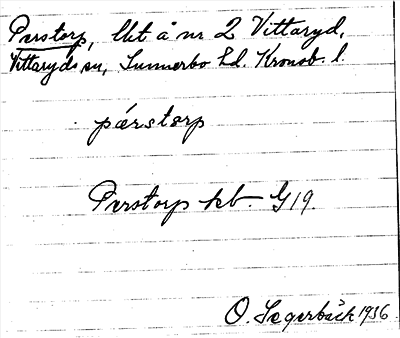 Perstorp, lht å nr 2 Vittaryd,
Vittaryds sn, Sunnerbo hd. Kronob. l.
pærstorp
Perstorp kb G19.
O. Segerbäck 1936